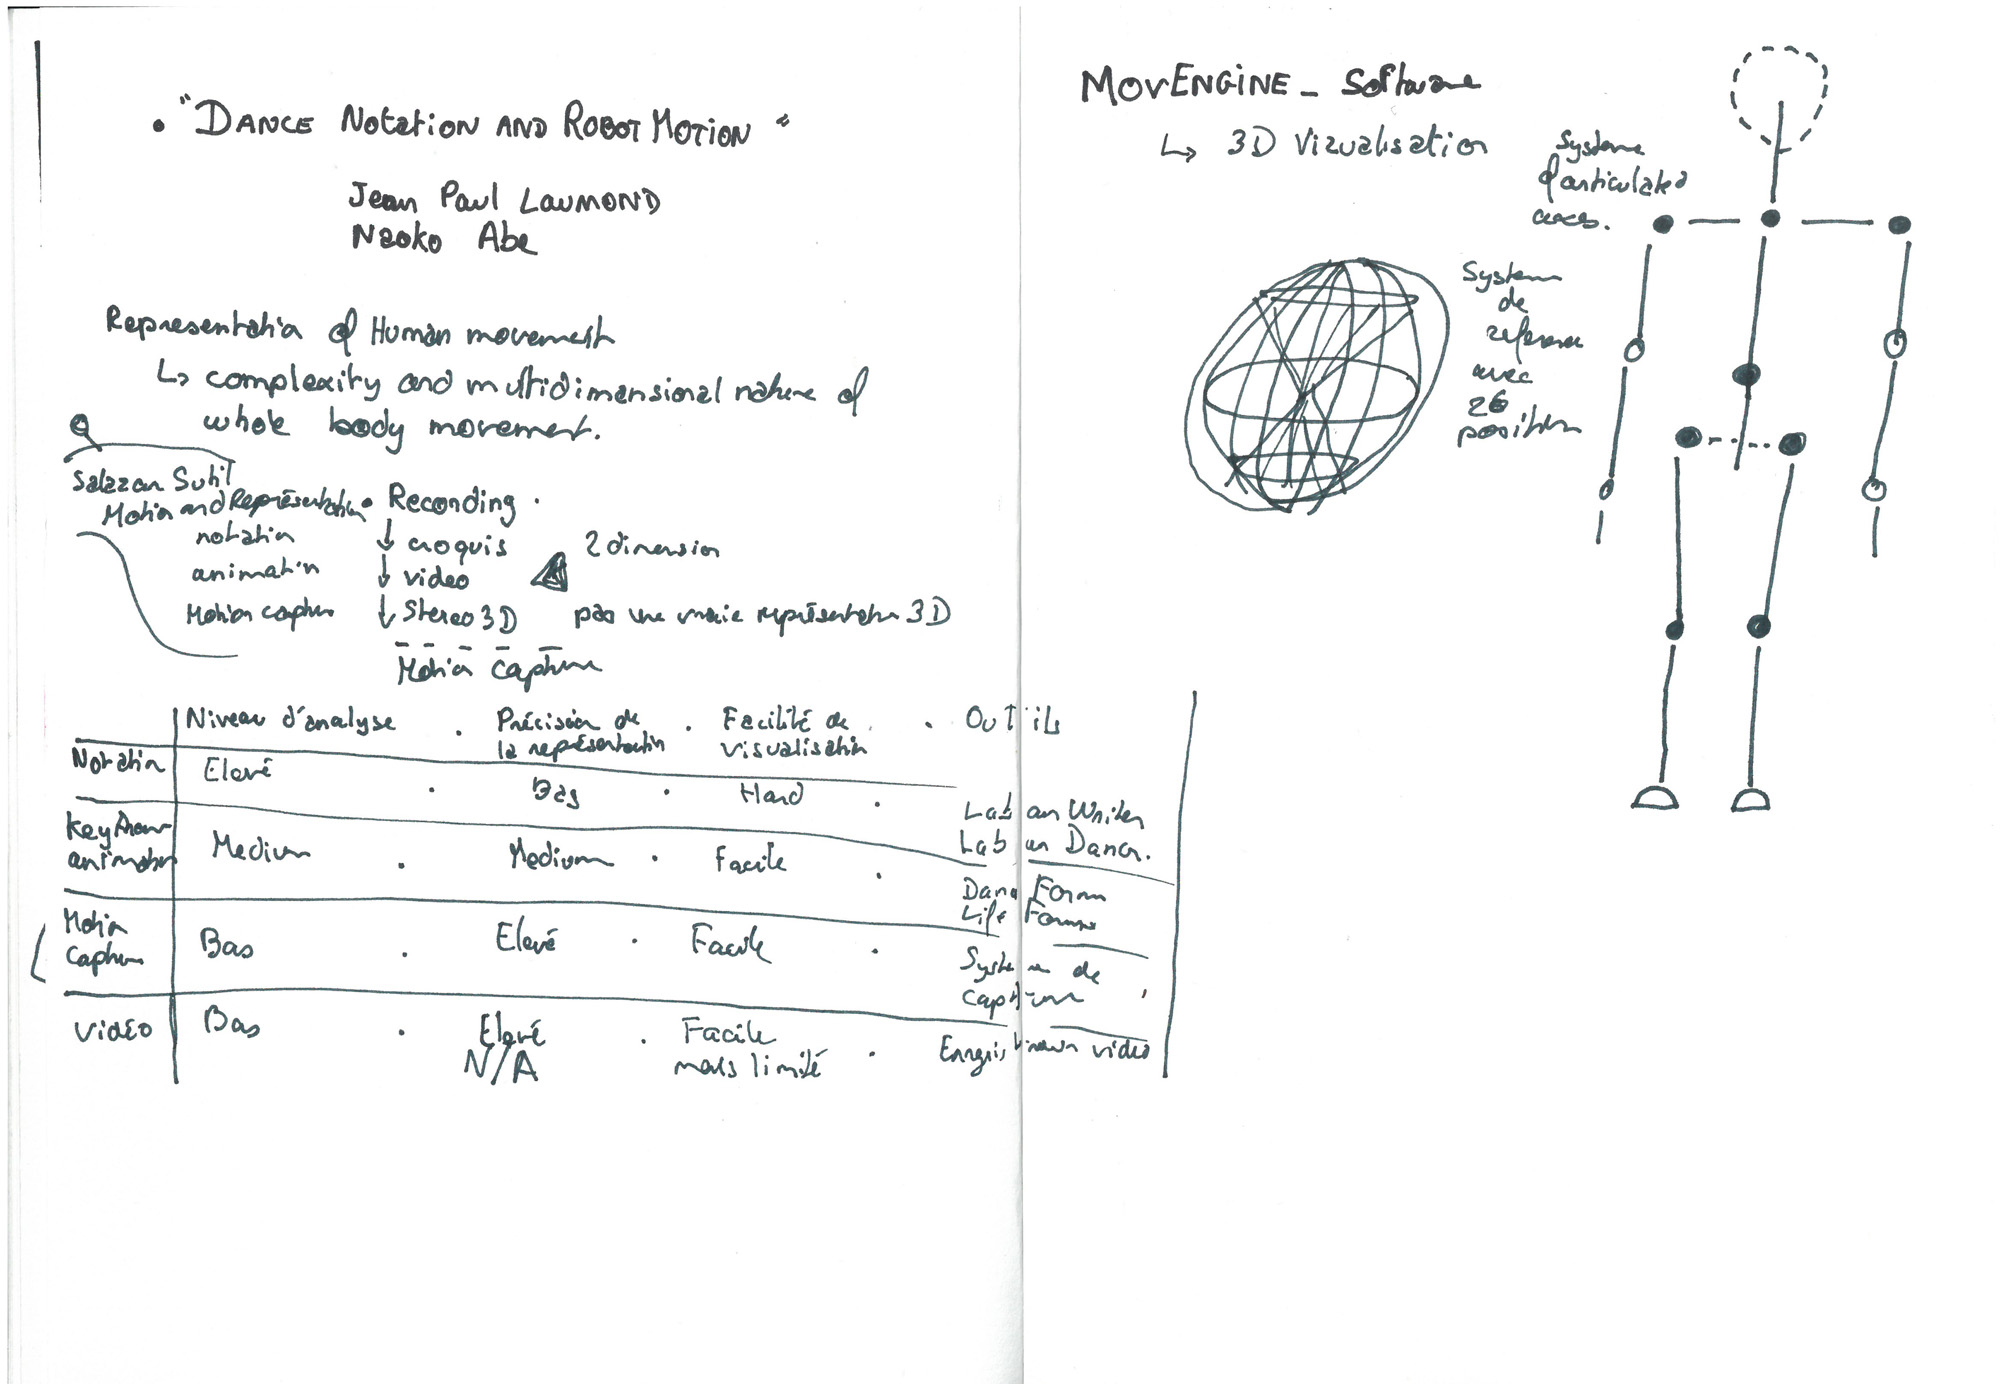 • "DANCE Notation AND ROBOT MOTION"
Jean Paul LAUMOND
Naoko Abe
Representation of Human movement
↳ complexity and multidimensional nature of
whole body movement.
Salazar Sutil
Motion and Représentation
notation
animation
Motion capture
• Recording .
↓ croquis
↓ video
↓ Stereo 3D
2 dimension
pas une vraie représentation 3D
Motion Capture
Niveau d'analyse . Précision de la représentation . Facilité de visualisation . OUTILS
Notation Elevé . Bas . Hard . Laban Writer
Laban Dancer.
Keyframe animation Medium . Medium . Facile . Dance Form
Life Forms
Motion Capture Bas . Elevé . Facile . Système de
capture
Vidéo Bas . Elevé . Facile . Enregistrement video
N/A mais limité
MOVENGINE - Software
↳ 3D Vizualisation
System
of articulated
axes.
System
de
reference
avec
26
position